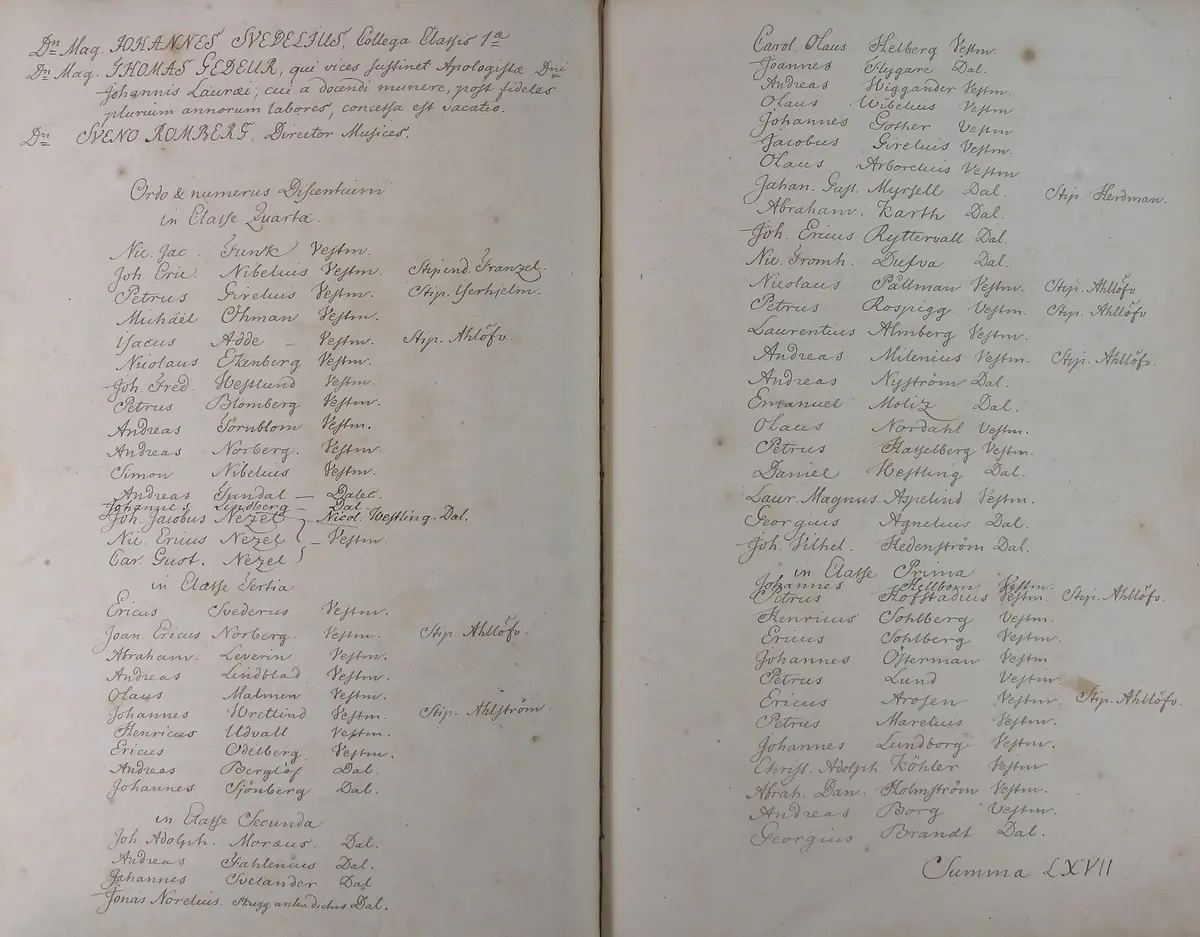 Dn Mag. JOHANNES SVEDELIUS, Collega Classis 1æ
Dn Mag. THOMAS GEDEUR, qui vices sustinet Apologistæ Dni
Johannis Lauræi; cui a docendi munere, post fideles
plurium annorum labores, concessa est vacatio.
Dn SVENO ROMBERG, Director Musices.
Ordo & numerus Discentium
in Classe Quarta.
Nic. Jac. Funk Vestm.
Joh. Eric. Nibelius Vestm. Stipend. Franzel.
Petrus Girelius Vestm. Stip. Yerhjelm.
Michäel Öhman Vestm.
Adde – Vestm. Stip. Ahllöfv.
Nicolaus Ekenberg Vestm.
Joh. Fred. Westlund Vestm.
Petrus Blomberg Vestm.
Andreas Törnblom Vestm.
Andreas Norberg. Vestm.
Simon Nibelius Vestm.
Andreas Sandal – Dalec.
Johannes Lindberg – Dal.
Joh. Jacobus Nezel – Nicol. Westling. Dal.
Nic. Ericus Nezel – Vestm.
Car. Gust. Nezel
in Classe Tertia
Ericus Svederus Vestm.
Joan. Ericus Norberg. Vestm. Stip. Ahllöfv.
Abraham. Leverin Vestm.
Andreas Lindblad Vestm.
Olaus Malmen Vestm.
Johannes Wretlind Vestm. Stip. Ahlström.
Henricus Udvall Vestm.
Ericus Odelberg Vestm.
Andreas Berglöf Dal.
Johannes Sjönberg Dal.
in Classe Secunda
Joh. Adolph. Moræus Dal.
Andreas Fahlenius Dal.
Johannes Svelander Dal
Jonas Norelius. Skugg antea dictus Dal.
Carol. Olaus Helberg Vestm.
Joannes Flygare Dal.
Andreas Wiggander Vestm.
Olaus Wibelius Vestm
Johannes Gother Vestm
Jacobus Girelius Vestm.
Olaus Arborelius Vestm
Johan. Gust. Myrsell Dal. Stip. Herdman.
Abraham. Karth Dal.
Joh. Ericus Ryttervall Dal.
Nic. Fromh. Dufva Dal.
Nicolaus Pällman Vestm. Stip. Ahllöfv
Petrus Rospigg Vestm. Stip. Ahllöfv
Laurentius Almberg Vestm.
Andreas Milenius Vestm. Stip. Ahllöfv
Andreas Nyström Dal.
Emanuel Moliz Dal.
Olaus Nordahl Vestm.
Petrus Hasselberg Vestm.
Daniel Westling Dal.
Laur. Magnus Aspelind Vestm.
Georgius Agnelius Dal.
Joh. Vilhel. Hedenström Dal.
in Classe Prima
Johannes Hellbom Vestm.
Petrus Hofstadius Vestm. Stip. Ahllöfv.
Henricus Sohlberg Vestm.
Ericus Sohlberg Vestm.
Johannes Österman Vestm
Petrus Lund Vestm.
Ericus Arosen Vestm. Stip. Ahllöfv.
Petrus Marelius Vestm.
Johannes Lundborg Vestm.
Christ. Adolph Köhler Vestm
Abrah. Dan. Holmström Vestm.
Andreas Borg Vestm.
Georgius Brandt Dal.
Summa LXVII